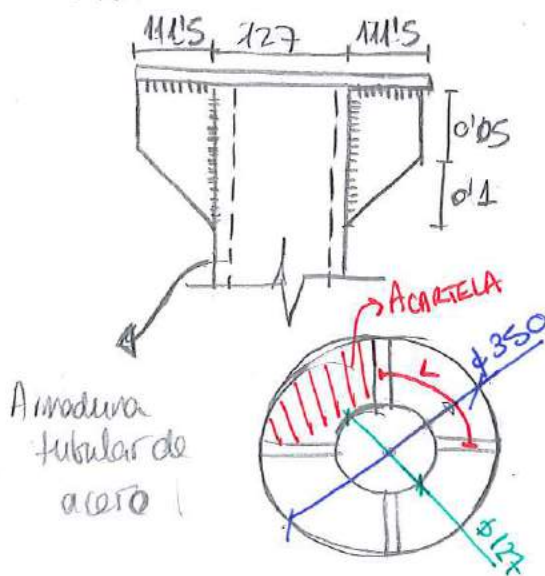 111'5 127 111'5
0'05
0'1
ACARTELA
L
ϕ350
Armadura
tubular de
acero
ϕ127